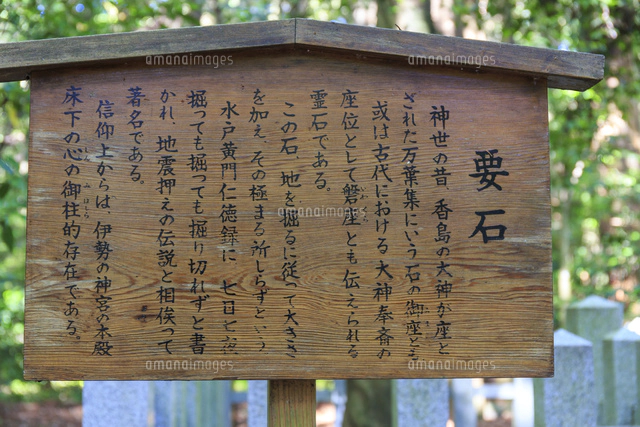 要石
神世の昔 香島の大神が座と
された万葉集にいう石の御座とも
或は古代における大神奉斎の
座位として磐座とも伝えられる
霊石である。
この石、地を掘るに従って大きさ
を加え、その極まる所しらずという
水戸黄門仁徳録に 七日七夜
掘っても掘っても掘り切れずと書
かれ、地震押えの伝説と相俟って
著名である。
信仰上からは 伊勢の神宮の本殿
床下の心の御柱的存在である。
amanaimages
amanaimages
amanaimages
amanaimages
amanaimages
amanaimages